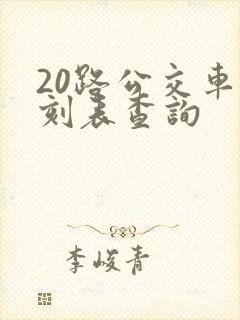 20路公交車
刻表查詢
李峻青